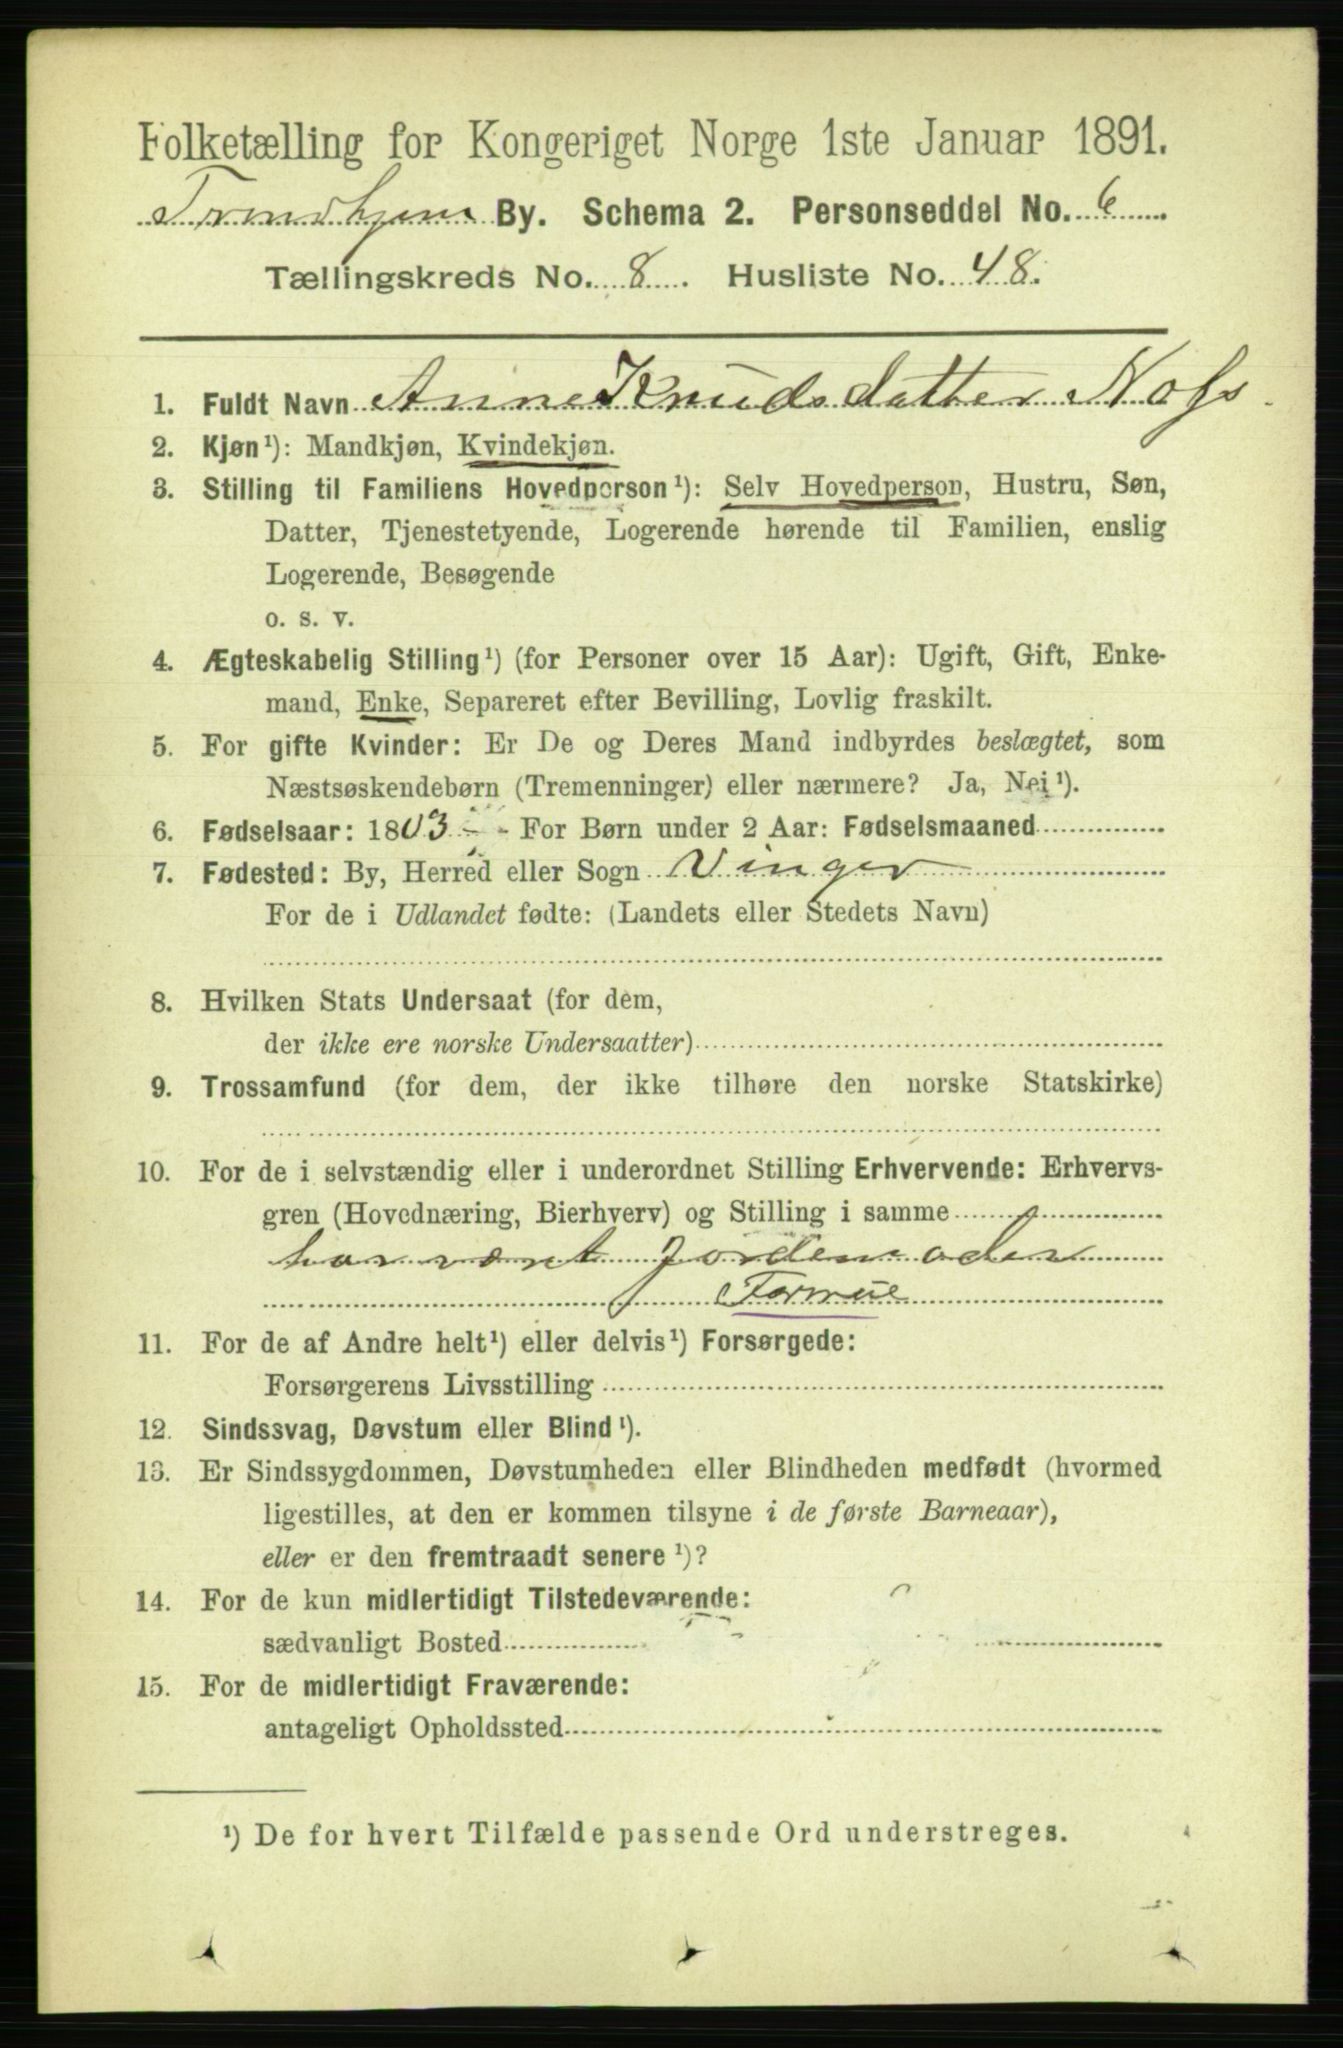 Folketælling for Kongeriget Norge 1ste Januar 1891.
Trondhjem By. Schema 2. Personseddel No. 6
Tællingskreds No. 8. Husliste No. 48.
1. Fuldt Navn Anne Knudsdatter
2. Kjøn¹): Mandkjøn, Kvindekjøn.
3. Stilling til Familiens Hovedperson¹): Selv Hovedperson, Hustru, Søn,
Datter, Tjenestetyende, Logerende hørende til Familien, enslig
Logerende, Besøgende
o. s. v.
4. Ægteskabelig Stilling¹) (for Personer over 15 Aar): Ugift, Gift, Enke-
mand, Enke, Separeret efter Bevilling, Lovlig fraskilt.
5. For gifte Kvinder: Er De og Deres Mand indbyrdes beslægtet, som
Næstsøskendebørn (Tremenninger) eller nærmere? Ja, Nei¹).
6. Fødselsaar: 1803 - For Børn under 2 Aar: Fødselsmaaned
7. Fødested: By, Herred eller Sogn Vinger
For de i Udlandet fødte: (Landets eller Stedets Navn)
8. Hvilken Stats Undersaat (for dem,
der ikke ere norske Undersaatter)
9. Trossamfund (for dem, der ikke tilhøre den norske Statskirke)
10. For de i selvstændig eller i underordnet Stilling Erhvervende: Erhvervs-
gren (Hovednæring, Bierhverv) og Stilling i samme
har vært Jordemoder
Formue
11. For de af Andre helt¹) eller delvis¹) Forsørgede:
Forsørgerens Livsstilling
12. Sindssvag, Døvstum eller Blind¹).
13. Er Sindssygdommen, Døvstumheden eller Blindheden medfødt (hvormed
ligestilles, at den er kommen tilsyne i de første Barneaar),
eller er den fremtraadt senere¹)?
14. For de kun midlertidigt Tilstedeværende:
sædvanligt Bosted
15. For de midlertidigt Fraværende:
antageligt Opholdssted
¹) De for hvert Tilfælde passende Ord understreges.